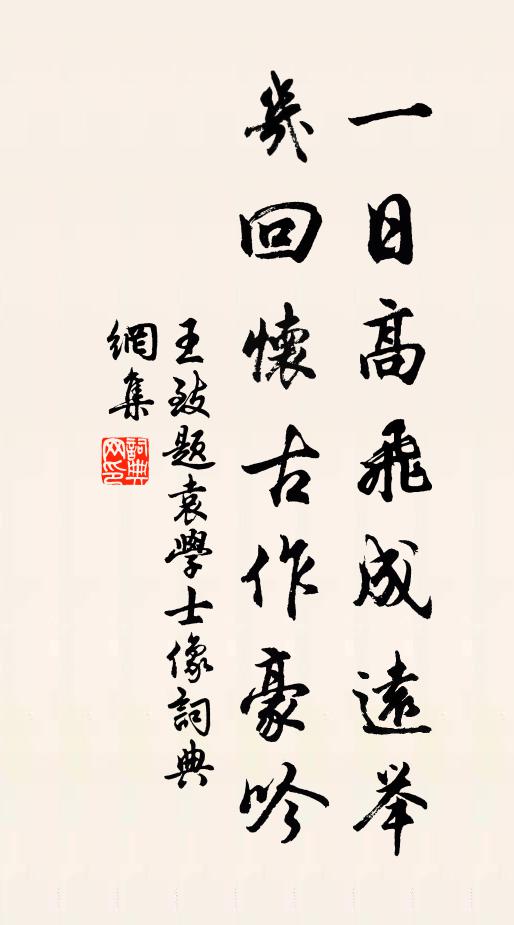 一日高飛成遠举
幾回懷古作豪吟
王致題袁學士像詞典
網集
詞典網印